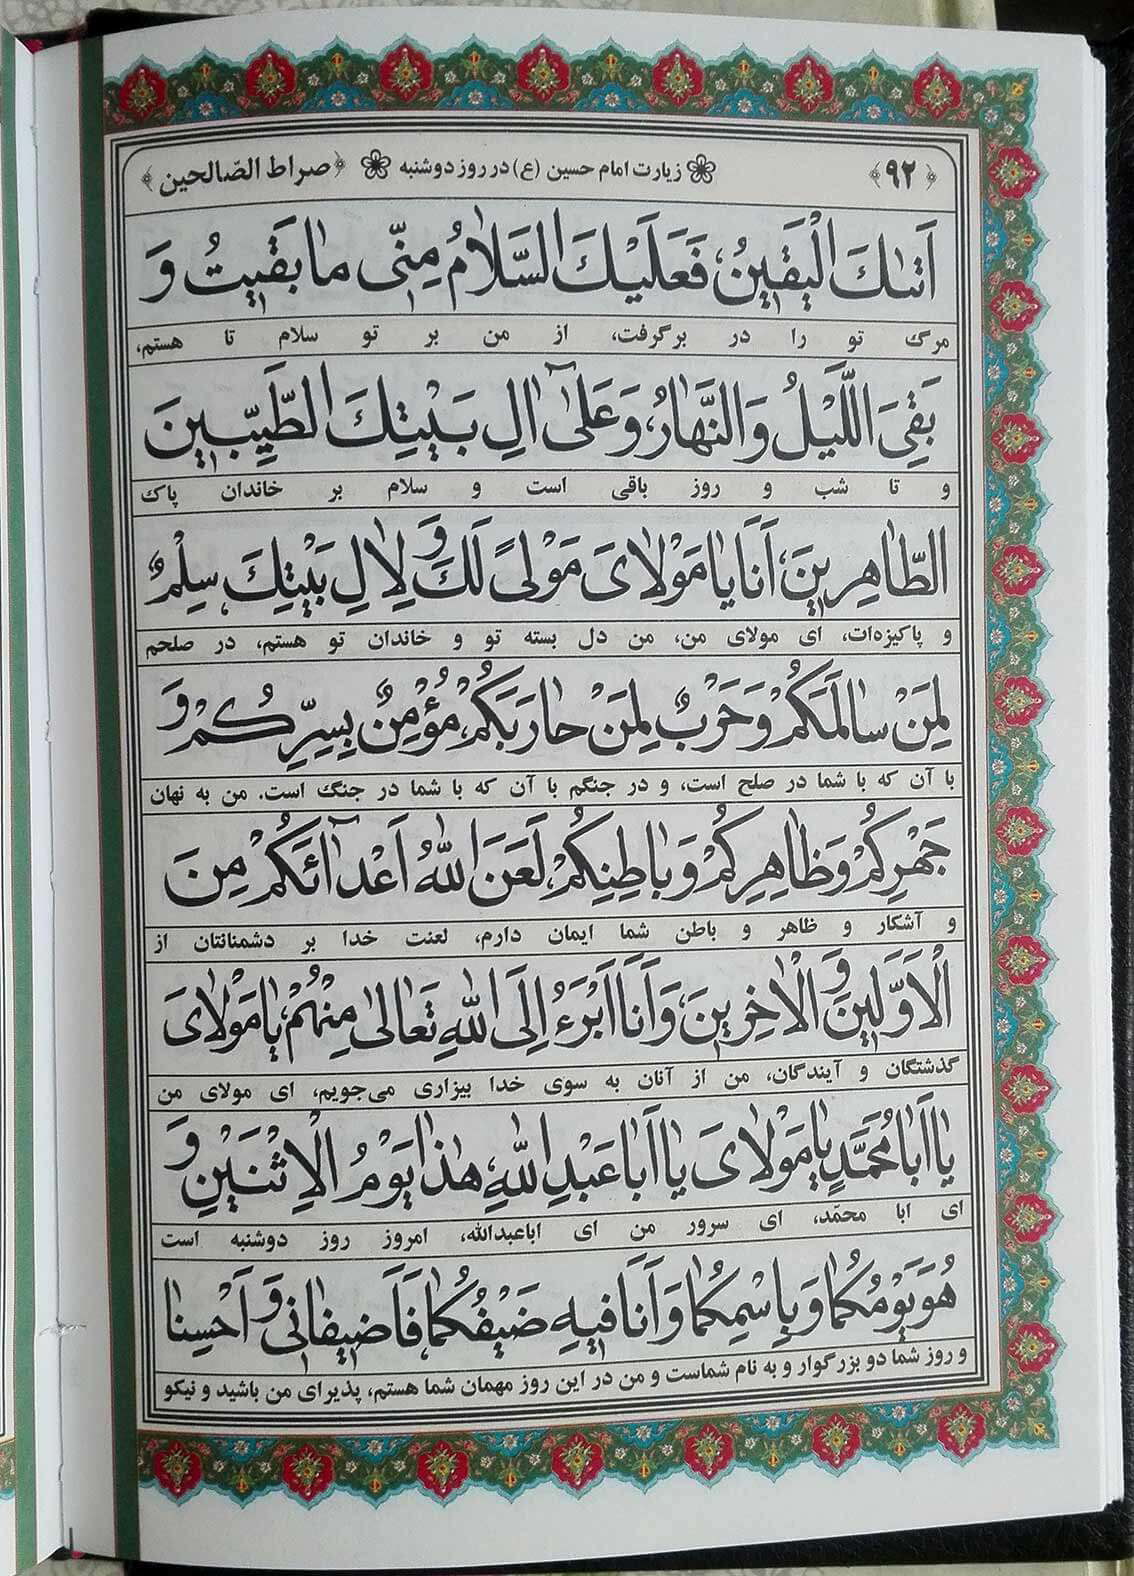 ﴿۹۲﴾ زیارت امام حسین (ع) در روز دوشنبه ﴿صراط الصّالحین﴾
اَتٰىكَ الْيَقينُ، فَعَلَيْكَ السَّلامُ مِنّى ما بَقيتُ وَ
مرگ تو را در برگرفت، از من بر تو سلام تا هستم،
بَقِىَ اللَّيْلُ وَالنَّهارُ، وَعَلىٰ آلِ بَيْتِكَ الطَّيِّبينَ
و تا شب و روز باقی است و سلام بر خاندان پاک
الطّاهِرينَ، اَنَا يا مَوْلاىَ مَوْلىً لَكَ وَ لِالِ بَيْتِكَ، سِلْمٌ
و پاکیزه‌ات، ای مولای من، من دل بسته تو و خاندان تو هستم، در صلحم
لِمَنْ سالَمَكُمْ وَ حَرْبٌ لِمَنْ حارَبَكُمْ، مُؤْمِنٌ بِسِرِّكُمْ وَ
با آن که با شما در صلح است، و در جنگم با آن که با شما در جنگ است. من به نهان
جَهْرِكُمْ وَ ظاهِرِكُمْ وَ باطِنِكُمْ، لَعَنَ اللهُ اَعْدآئَكُمْ مِنَ
و آشکار و ظاهر و باطن شما ایمان دارم، لعنت خدا بر دشمنانتان از
الْاَوَّلينَ وَ الْاخِرينَ، وَ اَنَا اَبْرَءُ اِلَى اللهِ تَعالىٰ مِنْهُمْ، يا مَوْلاىَ
گذشتگان و آیندگان، من از آنان به سوی خدا بیزاری می‌جویم، ای مولای من
يا اَبا مُحَمَّدٍ يا مَوْلاىَ يا اَبا عَبْدِ اللهِ، هٰذا يَوْمُ الْاِثْنَيْنِ وَ
ای ابا محمّد، ای سرور من ای اباعبدالله، امروز روز دوشنبه است
هُوَ يَوْمُكُما وَ بِاسْمِكُما وَ اَنَا فيهِ ضَيْفُكُما، فَاَضيفانى وَ اَحْسِنا
و روز شما دو بزرگوار و به نام شماست و من در این روز مهمان شما هستم، پذیرای من باشید و نیکو